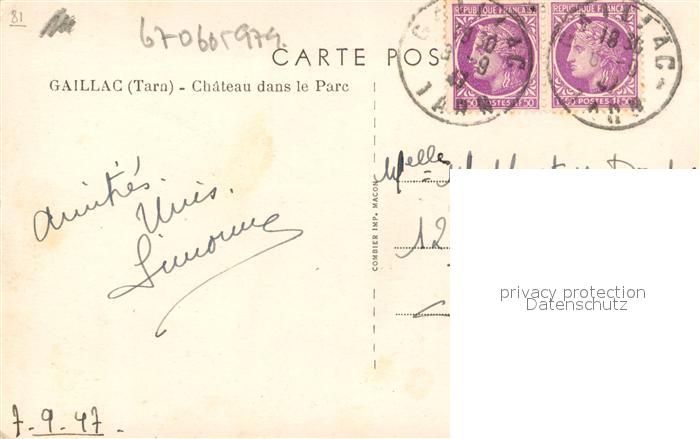 81
670605979.
CARTE POS
GAILLAC (Tarn) - Château dans le Parc
REPUBLIQUE FRANÇAISE
REPUBLIQUE FRANÇAISE
1F50 POSTES 1F50
1F50 POSTES 1F50
GAILLAC
TARN
GAILLAC
TARN
Amitiés.
Simonne
Melle
12
COMBIER IMP. MACON
privacy protection
Datenschutz
7-9-47-